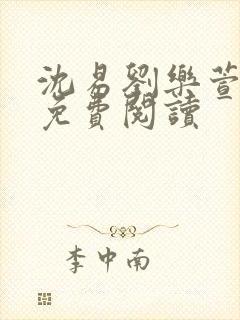 沈易劉樂萱
免費閱讀
李中南